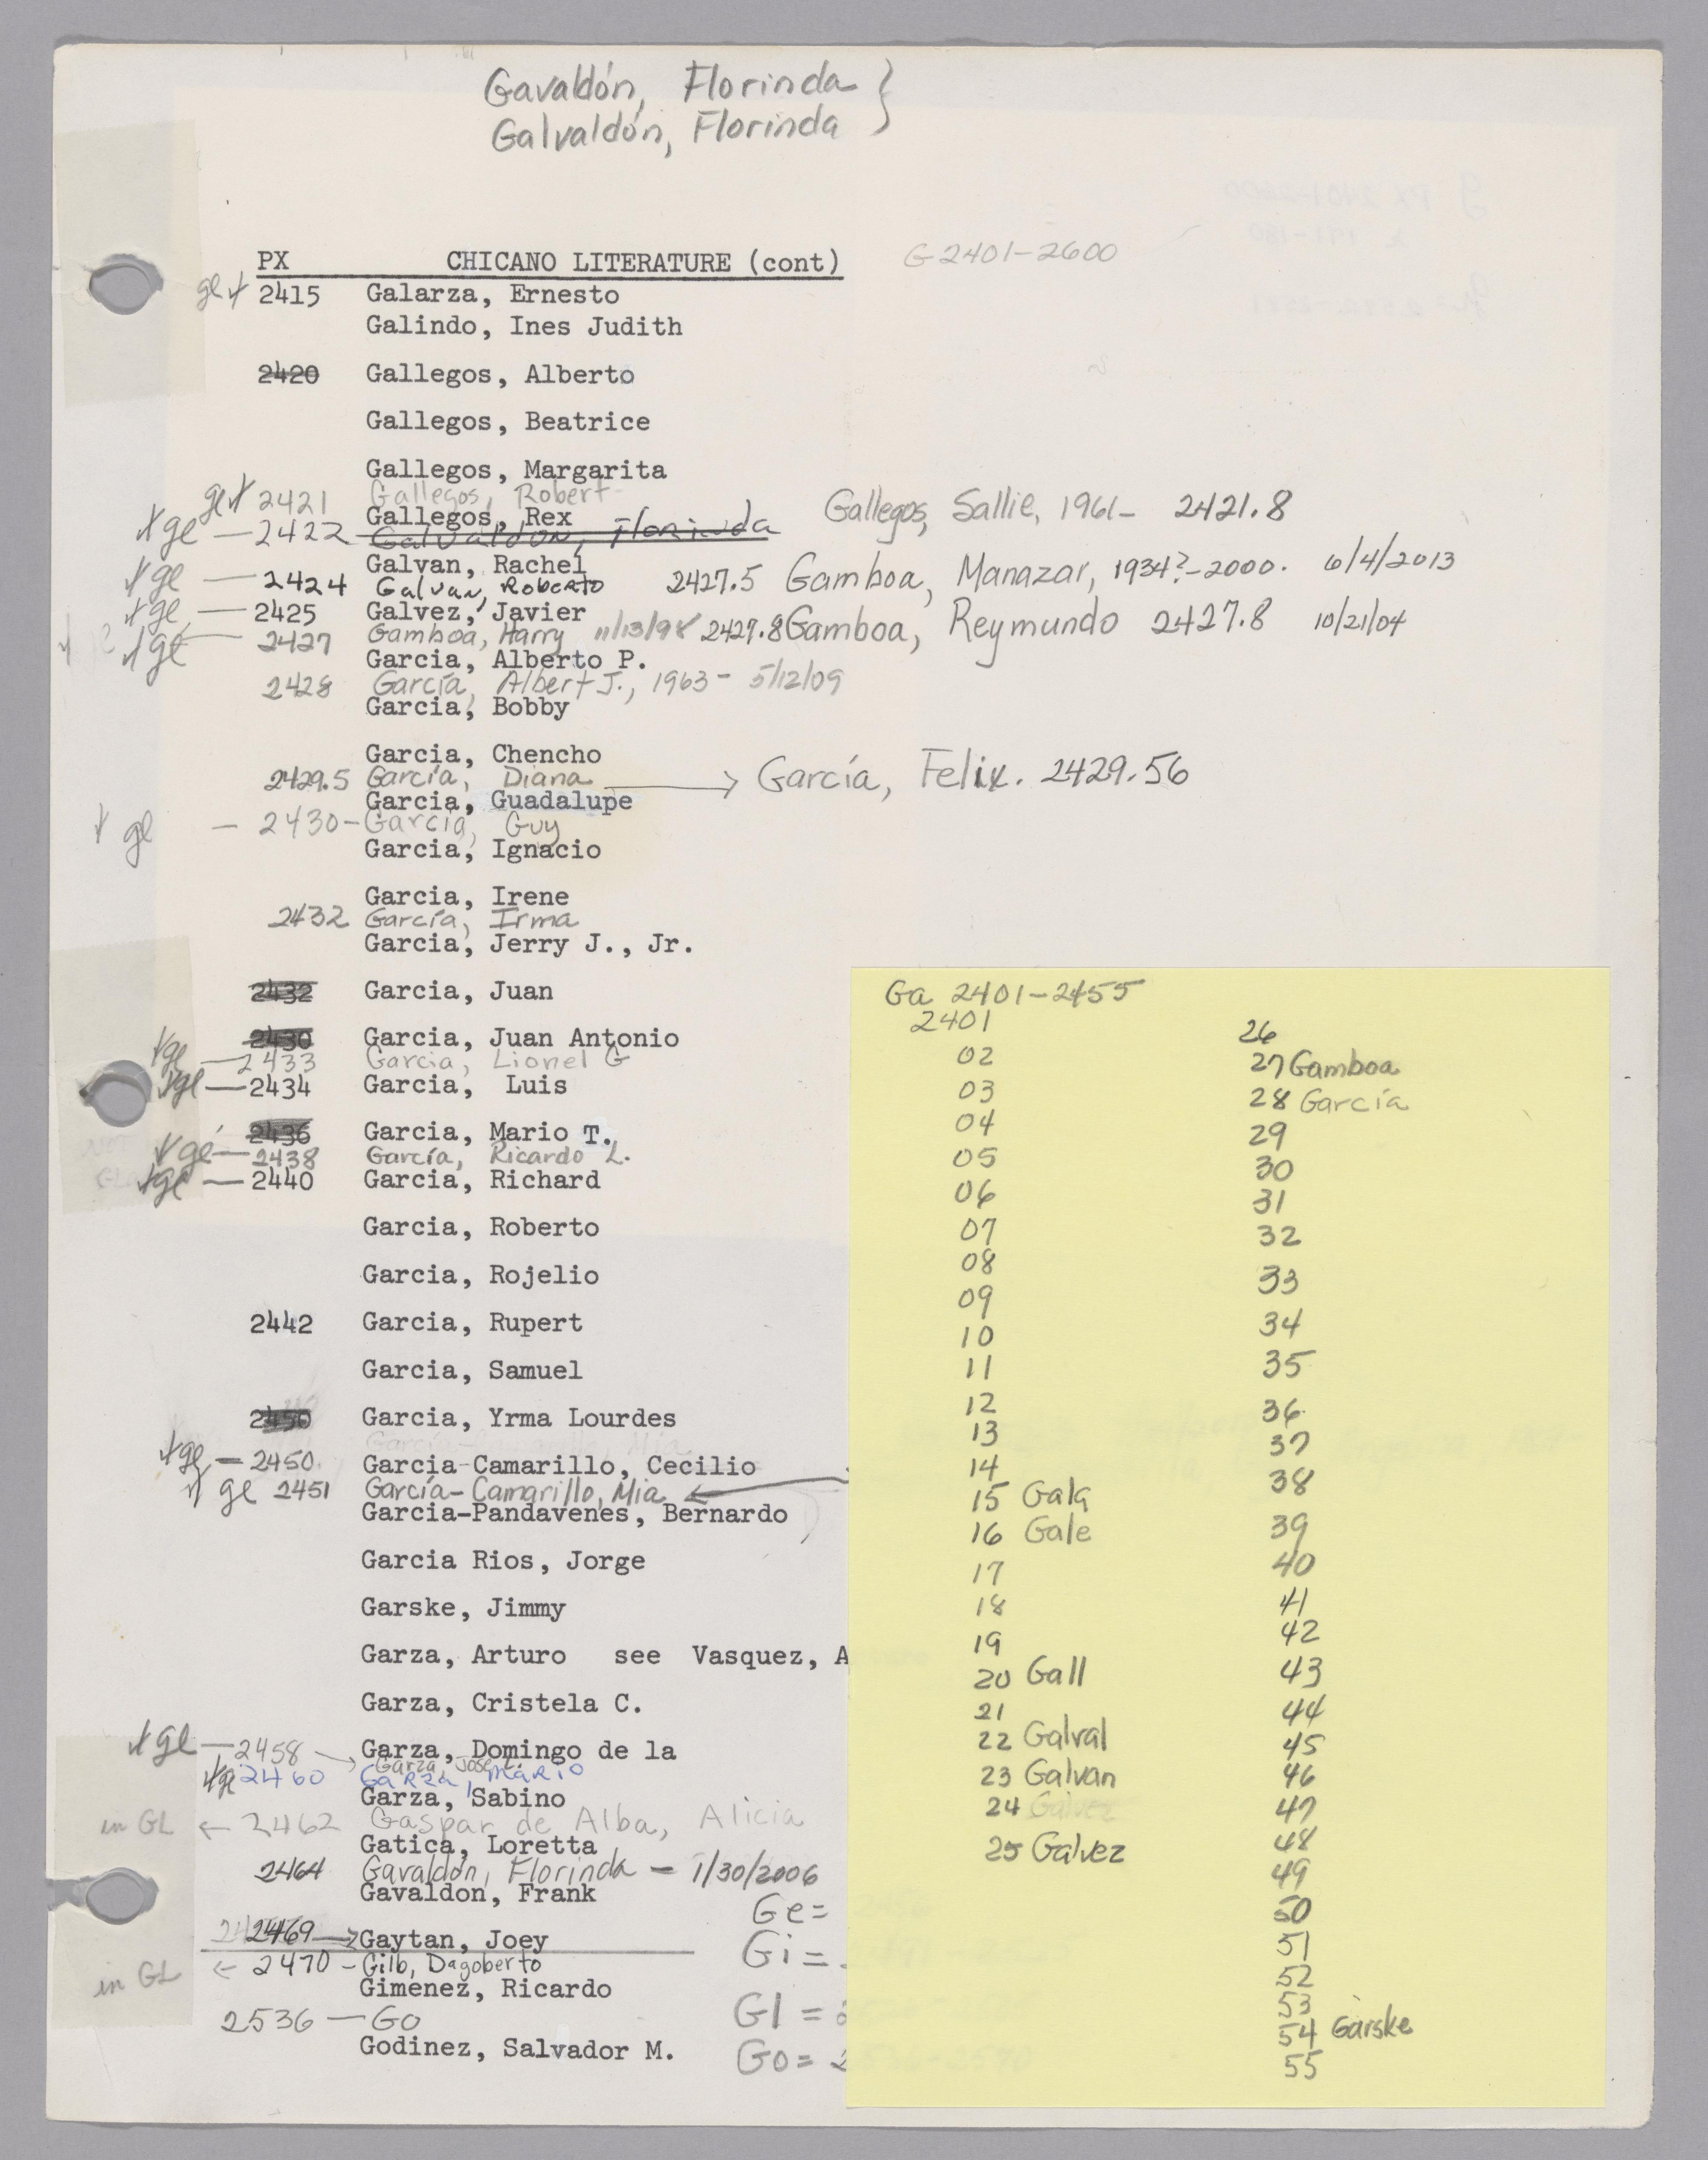 Gavaldón, Florinda }
Galvaldón, Florinda
PX CHICANO LITERATURE (cont) G 2401-2600
ge 2415 Galarza, Ernesto
Galindo, Ines Judith
2420 Gallegos, Alberto
Gallegos, Beatrice
Gallegos, Margarita
ge 2421 Gallegos, Robert
Gallegos, Rex Gallegos, Sallie, 1961- 2421.8
ge — 2422 Galvaldón, Florinda
Galvan, Rachel
ge — 2424 Galvan, Roberto 2427.5 Gamboa, Manazar, 1934?-2000. 6/4/2013
ge — 2425 Galvez, Javier
ge — 2427 Gamboa, Harry 11/13/98 2427.8 Gamboa, Reymundo 2427.8 10/21/04
Garcia, Alberto P.
2428 García, Albert J., 1963- 5/12/09
Garcia, Bobby
Garcia, Chencho
2429.5 García, Diana → García, Felix. 2429.56
Garcia, Guadalupe
ge — 2430 - García, Guy
Garcia, Ignacio
Garcia, Irene
2432 García, Irma
Garcia, Jerry J., Jr.
2432 Garcia, Juan
2430 Garcia, Juan Antonio
ge — 2433 Garcia, Lionel G
ge — 2434 Garcia, Luis
2436 Garcia, Mario T.
ge — 2438 García, Ricardo L.
ge — 2440 Garcia, Richard
Garcia, Roberto
Garcia, Rojelio
2442 Garcia, Rupert
Garcia, Samuel
2450 Garcia, Yrma Lourdes
García-Camarillo, Mia
ge — 2450 Garcia-Camarillo, Cecilio
ge 2451 García-Camarillo, Mia ←
Garcia-Pandavenes, Bernardo
Garcia Rios, Jorge
Garske, Jimmy
Garza, Arturo see Vasquez, A
Garza, Cristela C.
ge — 2458 → Garza, Domingo de la
Garza, José L.
ge 2460 Garza, Mario
Garza, Sabino
in GL ← 2462 Gaspar de Alba, Alicia
Gatica, Loretta
2464 Gavaldón, Florinda - 1/30/2006
Gavaldon, Frank
2469 → Gaytan, Joey
in GL ← 2470 - Gilb, Dagoberto
Gimenez, Ricardo
2536 — Go
Godinez, Salvador M.
Ge =
Gi =
Gl =
Go = 2
Ga 2401-2455
2401
02
03
04
05
06
07
08
09
10
11
12
13
14
15 Gala
16 Gale
17
18
19
20 Gall
21
22 Galval
23 Galvan
24 Galvez
25 Galvez
26
27 Gamboa
28 García
29
30
31
32
33
34
35
36
37
38
39
40
41
42
43
44
45
46
47
48
49
50
51
52
53
54 Garske
55